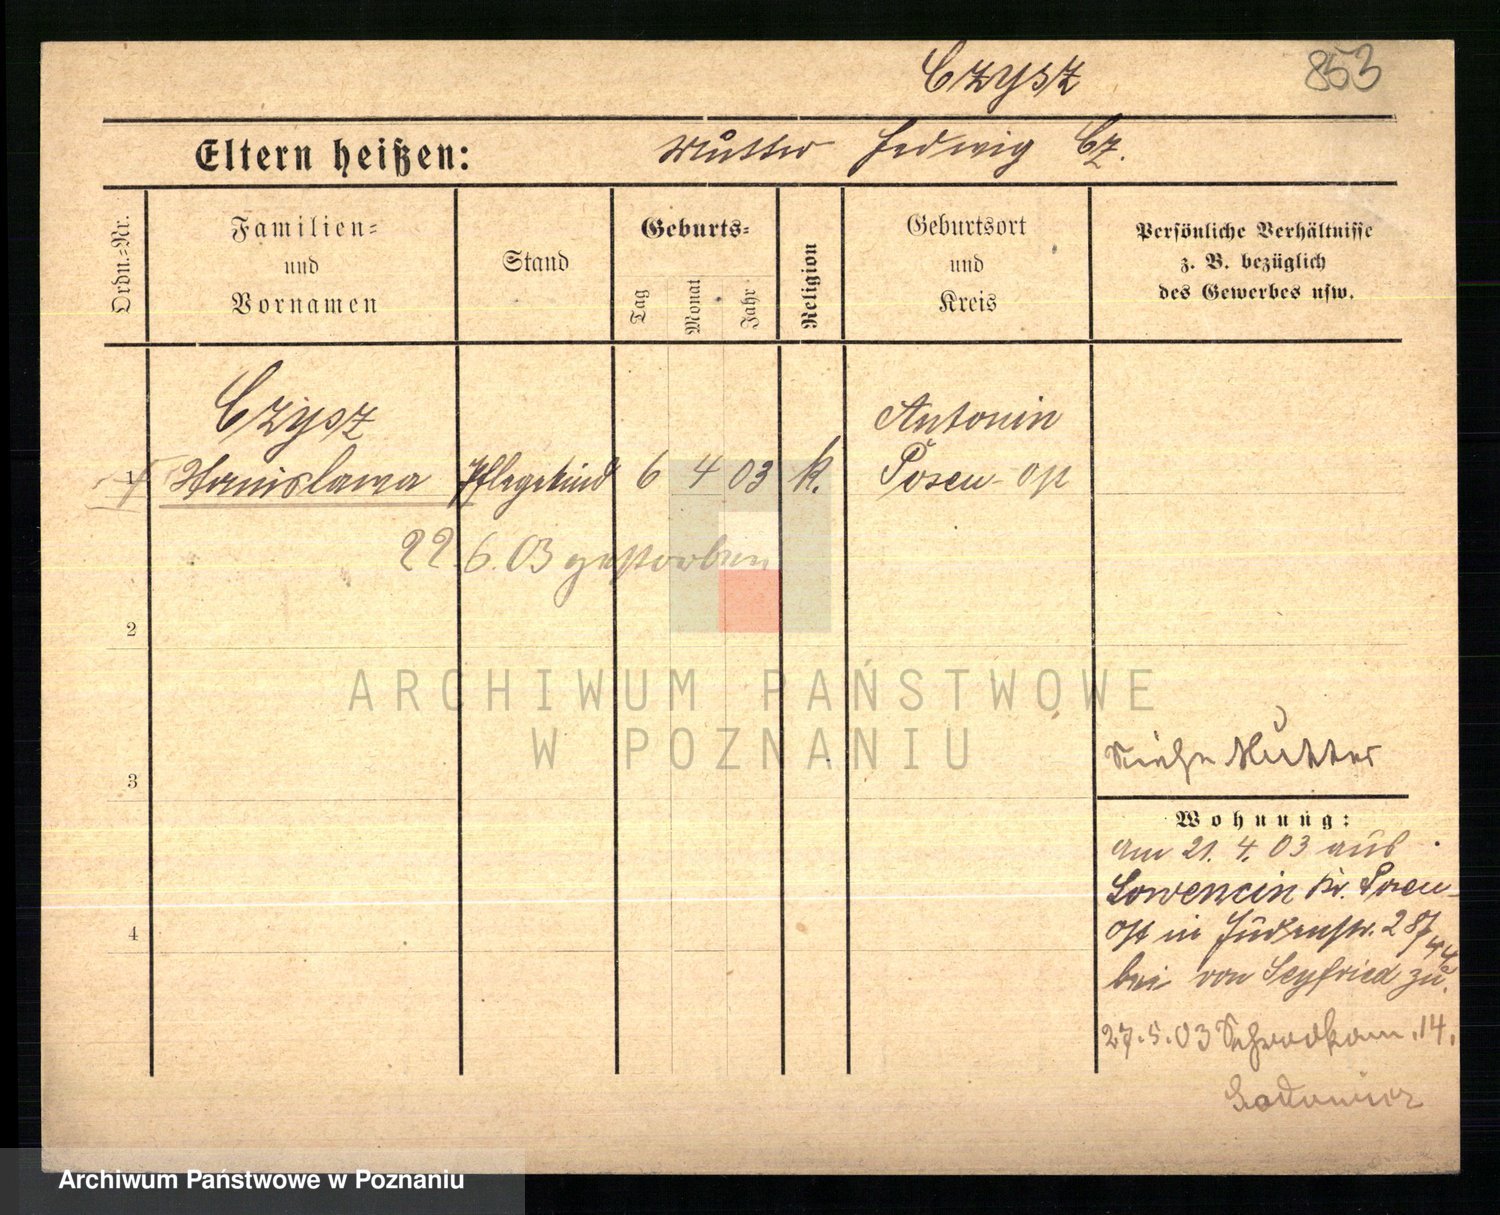 Czysz 853
Eltern heißen: Mutter Hedwig Cz.
Ordn.-Nr.
Familien-
und
Vornamen
Stand
Geburts-
Tag
Monat
Jahr
Religion
Geburtsort
und
Kreis
Persönliche Verhältnisse
z. B. bezüglich
des Gewerbes usw.
Czysz Antonin
1 Stanislawa Pflegekind 6 4 03 k. Posen-Ost
22.6.03 gestorben
2
3
4
Siehe Mutter
Wohnung:
am 21. 4. 03 aus
Lowencin Kr. Posen-
Ost in Judenstr. 28/
bei von Seyfried zu.
27.5.03 Schrodkam. 14.
ARCHIWUM PAŃSTWOWE
W POZNANIU
Archiwum Państwowe w Poznaniu